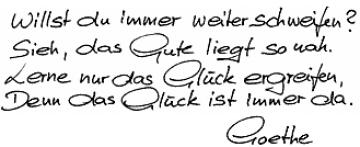 Willst du immer weiterschweifen?
Sieh, das Gute liegt so nah.
Lerne nur das Glück ergreifen,
Denn das Glück ist immer da.
Goethe